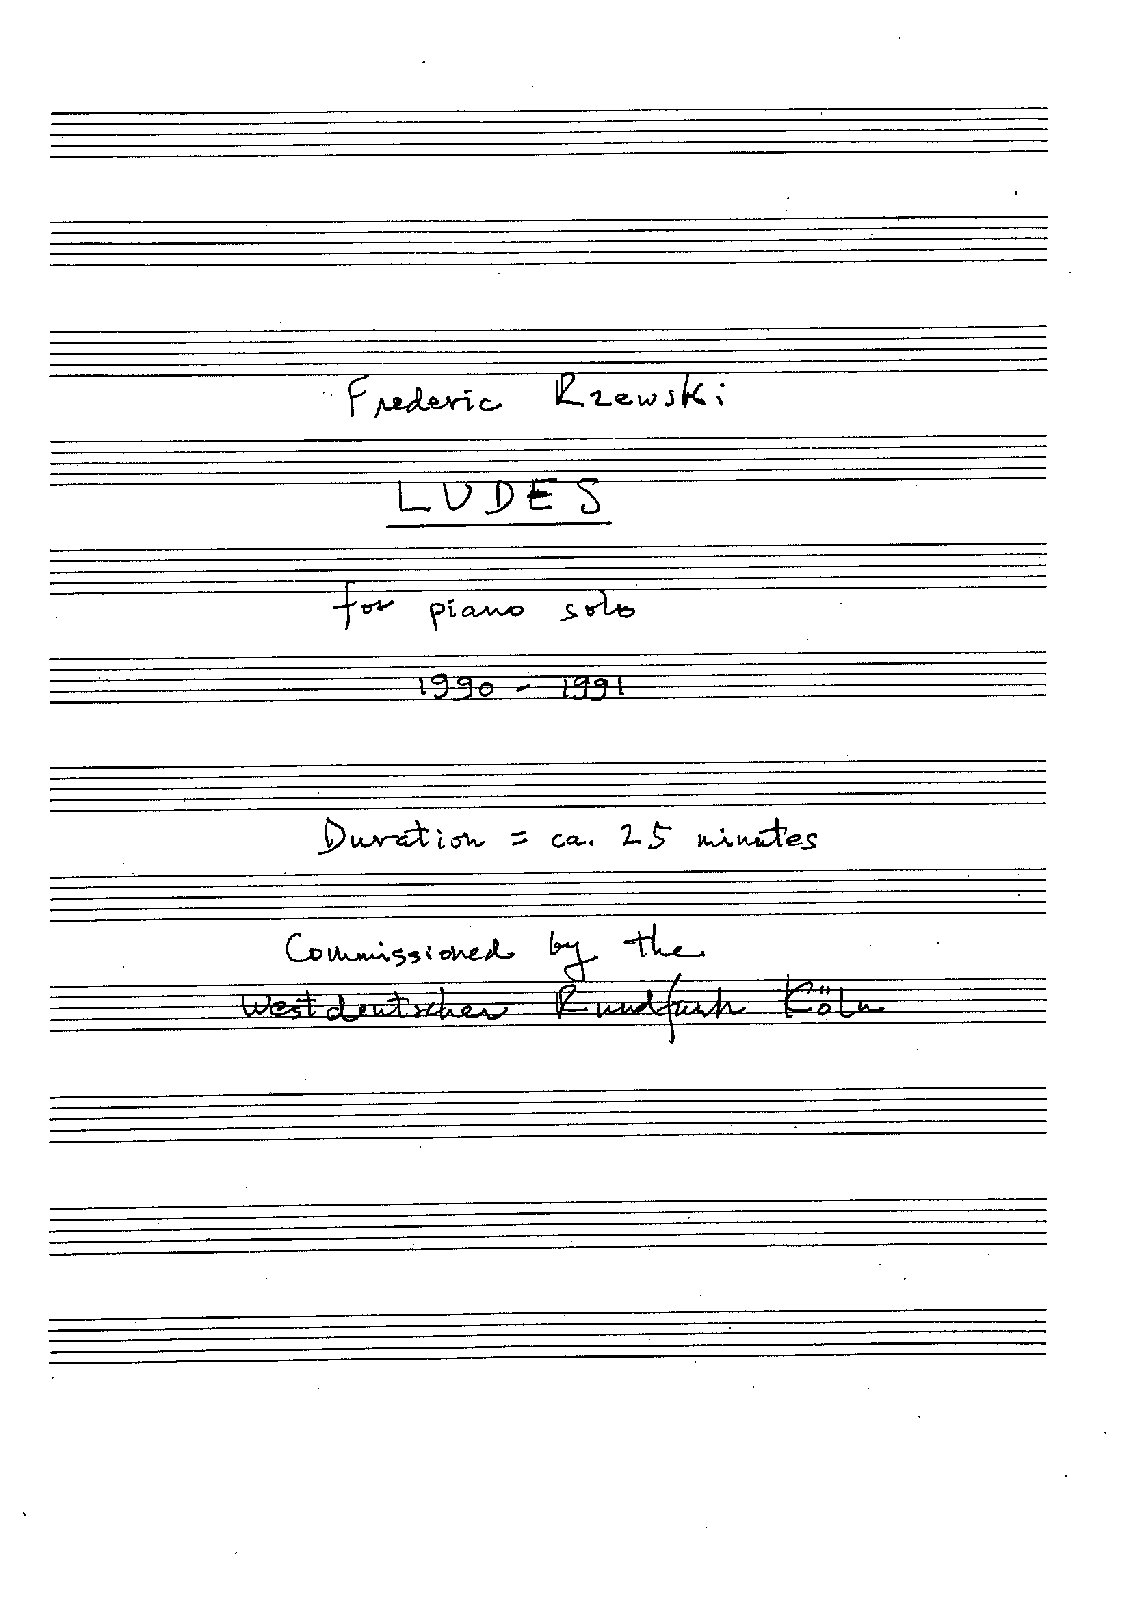 Frederic Rzewski
LUDES
for piano solo
1990 - 1991
Duration = ca. 25 minutes
Commissioned by the
Westdeutscher Rundfunk Köln